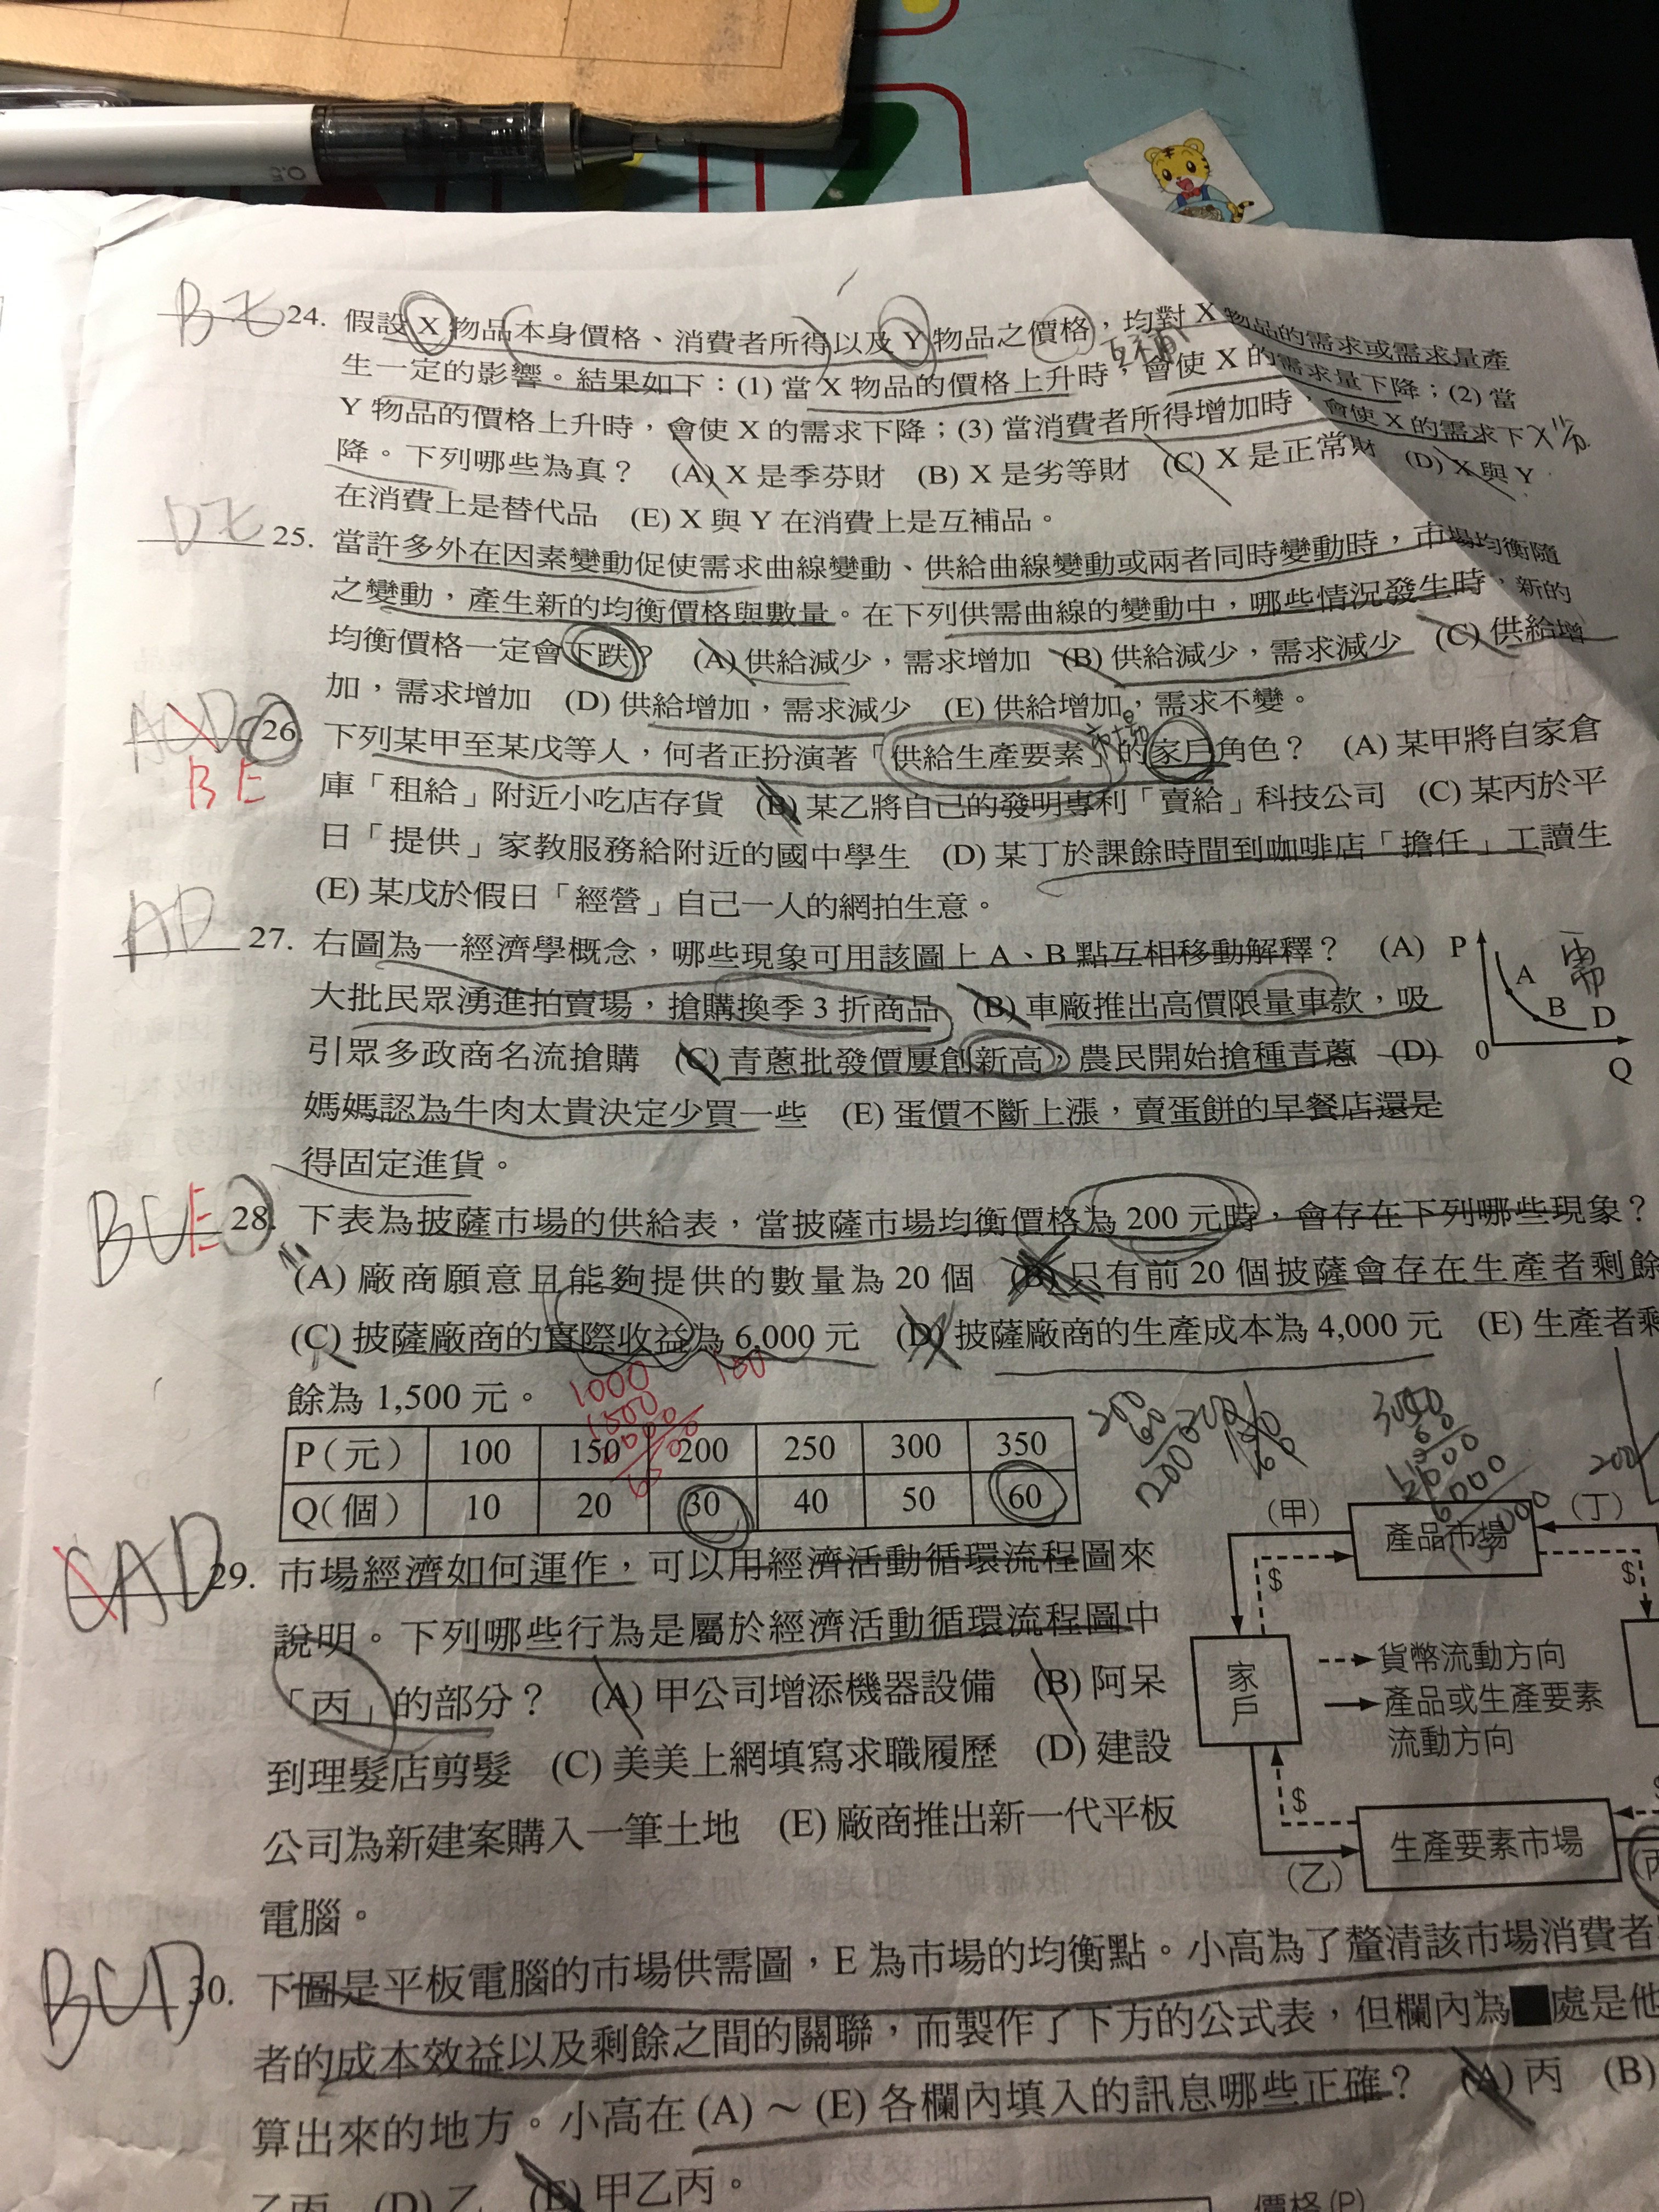 0.5
BE 24. 假設 X 物品本身價格、消費者所得以及 Y 物品之價格，均對 X 物品的需求或需求量產
互補
生一定的影響。結果如下：(1) 當 X 物品的價格上升時，會使 X 的需求量下降；(2) 當
Y 物品的價格上升時，會使 X 的需求下降；(3) 當消費者所得增加時，會使 X 的需求下
降。下列哪些為真？ (A) X 是季芬財 (B) X 是劣等財 (C) X 是正常財 (D) X 與 Y
在消費上是替代品 (E) X 與 Y 在消費上是互補品。
DE 25. 當許多外在因素變動促使需求曲線變動、供給曲線變動或兩者同時變動時，市場均衡隨
之變動，產生新的均衡價格與數量。在下列供需曲線的變動中，哪些情況發生時，新的
均衡價格一定會下跌？ (A) 供給減少，需求增加 (B) 供給減少，需求減少 (C) 供給增
加，需求增加 (D) 供給增加，需求減少 (E) 供給增加，需求不變。
26. 下列某甲至某戊等人，何者正扮演著「供給生產要素」的家戶角色？ (A) 某甲將自家倉
市場
BE
庫「租給」附近小吃店存貨 (B) 某乙將自己的發明專利「賣給」科技公司 (C) 某丙於平
日「提供」家教服務給附近的國中學生 (D) 某丁於課餘時間到咖啡店「擔任」工讀生
(E) 某戊於假日「經營」自己一人的網拍生意。
AD 27. 右圖為一經濟學概念，哪些現象可用該圖上 A、B 點互相移動解釋？ (A)
大批民眾湧進拍賣場，搶購換季 3 折商品 (B) 車廠推出高價限量車款，吸
引眾多政商名流搶購 (C) 青蔥批發價屢創新高，農民開始搶種青蔥 (D)
媽媽認為牛肉太貴決定少買一些 (E) 蛋價不斷上漲，賣蛋餅的早餐店還是
得固定進貨。
P
A
B
D
0
Q
需
BCE 28. 下表為披薩市場的供給表，當披薩市場均衡價格為 200 元時，會存在下列哪些現象？
(A) 廠商願意且能夠提供的數量為 20 個 (B) 只有前 20 個披薩會存在生產者剩餘
(C) 披薩廠商的實際收益為 6,000 元 (D) 披薩廠商的生產成本為 4,000 元 (E) 生產者剩
餘為 1,500 元。
1000
P（元） 100 150 200 250 300 350
Q（個） 10 20 30 40 50 60
200
CAD 29. 市場經濟如何運作，可以用經濟活動循環流程圖來
說明。下列哪些行為是屬於經濟活動循環流程圖中
「丙」的部分？ (A) 甲公司增添機器設備 (B) 阿呆
到理髮店剪髮 (C) 美美上網填寫求職履歷 (D) 建設
公司為新建案購入一筆土地 (E) 廠商推出新一代平板
電腦。
（甲）
產品市場
（丁）
$
$
家戶
貨幣流動方向
產品或生產要素
流動方向
$
生產要素市場
（乙）
（丙
BCD 30. 下圖是平板電腦的市場供需圖，E 為市場的均衡點。小高為了釐清該市場消費者
者的成本效益以及剩餘之間的關聯，而製作了下方的公式表，但欄內為■處是他
算出來的地方。小高在 (A) ～ (E) 各欄內填入的訊息哪些正確？ (A) 丙 (B)
乙丙 (D) 乙 (E) 甲乙丙。
價格 (P)